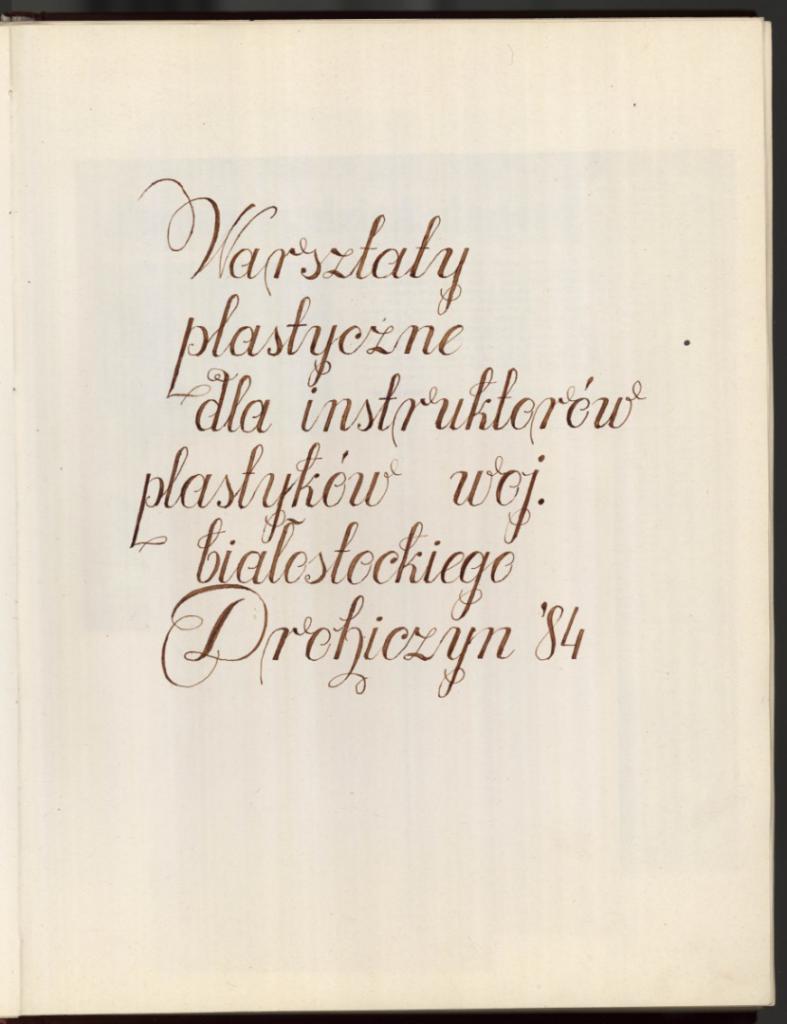 Warsztaty
plastyczne
dla instruktorów
plastyków woj.
białostockiego
Drohiczyn '84